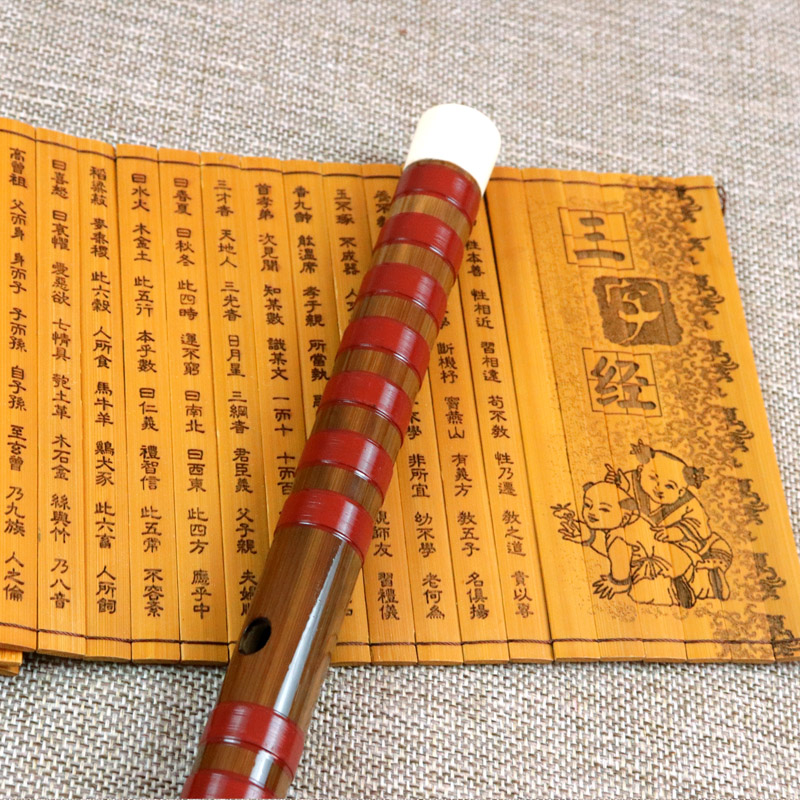 三字经
性本善 性相近 習相遠 苟不教 性乃遷 教之道 貴以專
斷機杼 竇燕山 有義方 教五子 名俱揚
養不 學 非所宜 幼不學 老何為
玉不琢 不成器 人 親師友 習禮儀
香九齡 能溫席 孝子親 所當執
首孝弟 次見聞 知某數 識某文 一而十 十而百
三才者 天地人 三光者 日月星 三綱者 君臣義 父子親 夫婦順
曰春夏 曰秋冬 此四時 運不窮 曰南北 曰西東 此四方 應乎中
曰水火 木金土 此五行 本乎數 曰仁義 禮智信 此五常 不容紊
稻粱菽 麥黍稷 此六穀 人所食 馬牛羊 雞犬豕 此六畜 人所飼
曰喜怒 曰哀懼 愛惡欲 七情具 匏土革 木石金 絲與竹 乃八音
高曾祖 父而身 身而子 子而孫 自子孫 至玄曾 乃九族 人之倫